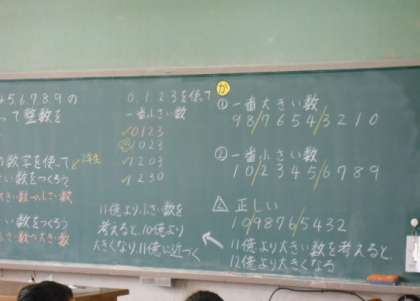 456789の
って整数を
の数字を使って
2年生
い数をつくろう
い数をつくろう
0.1.2.3を使って
一番小さい数
0123
1023
1203
1230
11億より小さい数を
考えると、10億より
大きくなり、11億に近づく
が
① 一番大きい数
9876543210
② 一番小さい数
1023456789
正しい
1098765432
11億より大きい数を考えると、
12億より大きくなる